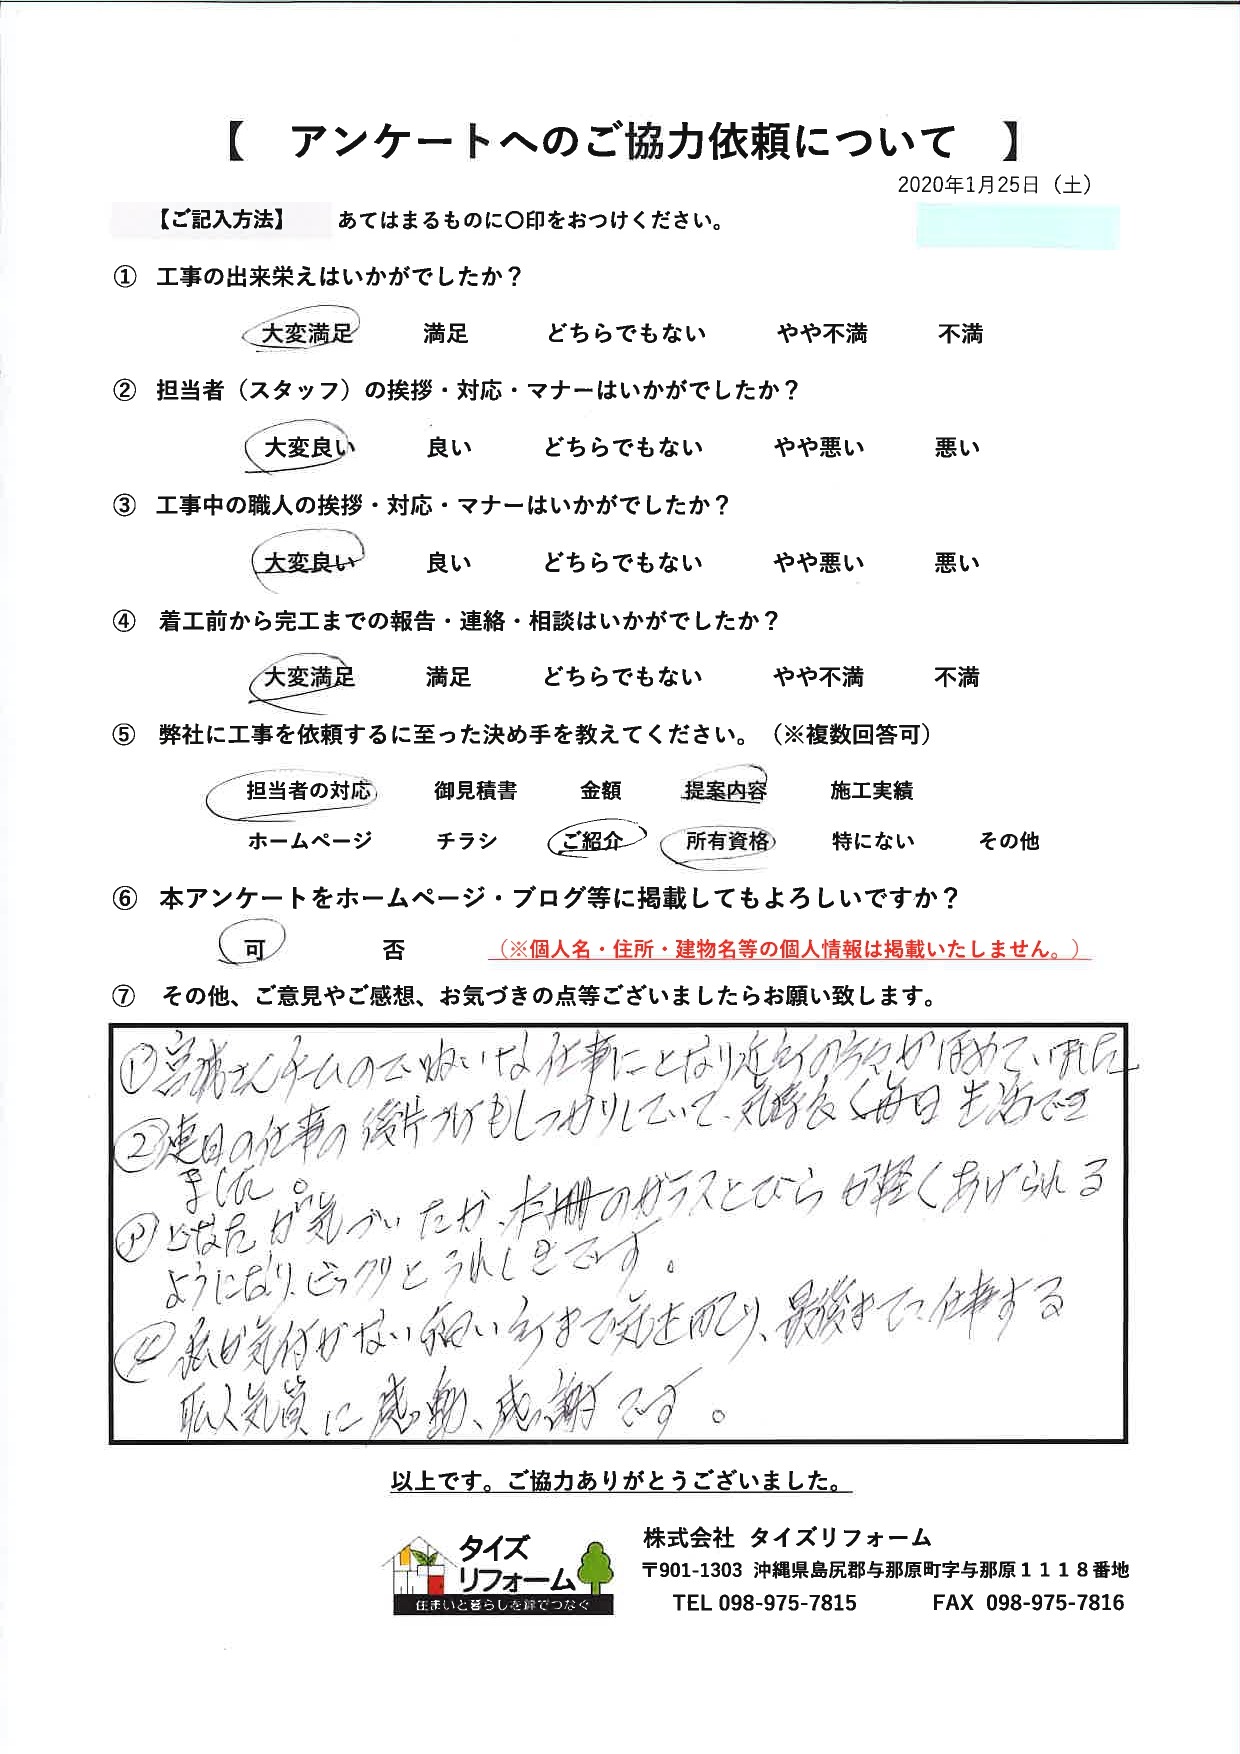 【 アンケートへのご協力依頼について 】
2020年1月25日（土）
【ご記入方法】 あてはまるものに〇印をおつけください。
① 工事の出来栄えはいかがでしたか？
大変満足 満足 どちらでもない やや不満 不満
② 担当者（スタッフ）の挨拶・対応・マナーはいかがでしたか？
大変良い 良い どちらでもない やや悪い 悪い
③ 工事中の職人の挨拶・対応・マナーはいかがでしたか？
大変良い 良い どちらでもない やや悪い 悪い
④ 着工前から完工までの報告・連絡・相談はいかがでしたか？
大変満足 満足 どちらでもない やや不満 不満
⑤ 弊社に工事を依頼するに至った決め手を教えてください。（※複数回答可）
担当者の対応 御見積書 金額 提案内容 施工実績
ホームページ チラシ ご紹介 所有資格 特にない その他
⑥ 本アンケートをホームページ・ブログ等に掲載してもよろしいですか？
可 否 （※個人名・住所・建物名等の個人情報は掲載いたしません。）
⑦ その他、ご意見やご感想、お気づきの点等ございましたらお願い致します。
① さんチームのていねいな仕事にとなり近所の方々がほめていました
② 連日の仕事の後片づけもしっかりしていて、気持良く毎日生活でき
ました。
③ どなたが気づいたか、本棚のガラスとびらが軽くあけられる
ようになり、ビックリとうれしさです。
④ 私が気付かない細い所まで気を配り、最後まで仕事する
職人気質に感動、感謝です。
以上です。ご協力ありがとうございました。
タイズ
リフォーム
住まいと暮らしを絆でつなぐ
株式会社 タイズリフォーム
〒901-1303 沖縄県島尻郡与那原町字与那原１１１８番地
TEL 098-975-7815 FAX 098-975-7816